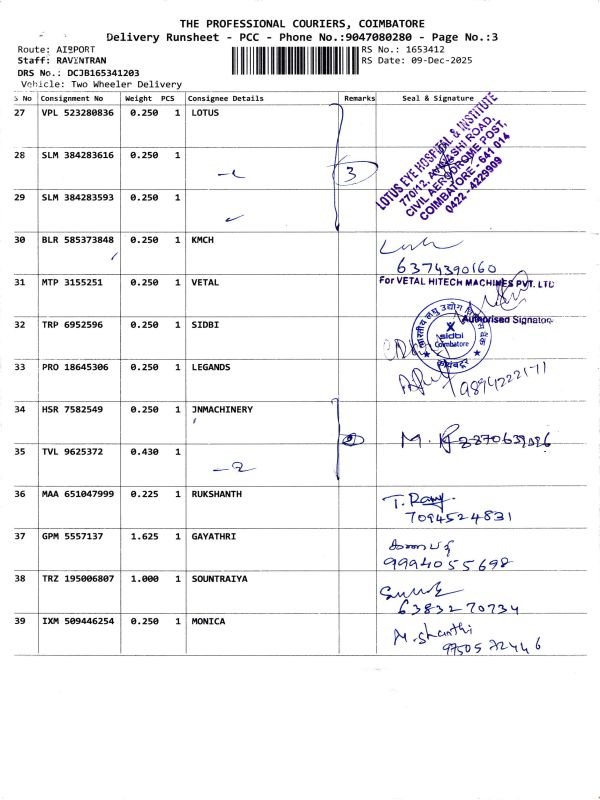 THE PROFESSIONAL COURIERS, COIMBATORE
Delivery Runsheet - PCC - Phone No.:9047080280 - Page No.:3
Route: AIRPORT
RS No.: 1653412
Staff: RAVINTRAN
RS Date: 09-Dec-2025
DRS No.: DCJB165341203
Vehicle: Two Wheeler Delivery
S No Consignment No Weight PCS Consignee Details Remarks Seal & Signature
27 VPL 523280836 0.250 1 LOTUS
LOTUS EYE HOSPITAL & INSTITUTE
770/12, AVINASHI ROAD,
CIVIL AERODROME POST,
COIMBATORE - 641 014
0422 - 4229999
28 SLM 384283616 0.250 1
3
29 SLM 384283593 0.250 1
30 BLR 585373848 0.250 1 KMCH
6374390160
31 MTP 3155251 0.250 1 VETAL
For VETAL HITECH MACHINES PVT. LTD
Authorised Signator
32 TRP 6952596 0.250 1 SIDBI
sidbi
Coimbatore
33 PRO 18645306 0.250 1 LEGANDS
34 HSR 7582549 0.250 1 JNMACHINERY
35 TVL 9625372 0.430 1
-2
36 MAA 651047999 0.225 1 RUKSHANTH
7094524831
37 GPM 5557137 1.625 1 GAYATHRI
9994055698
38 TRZ 195006807 1.000 1 SOUNTRAIYA
6383270734
39 IXM 509446254 0.250 1 MONICA
M. Shanthi
9750572446